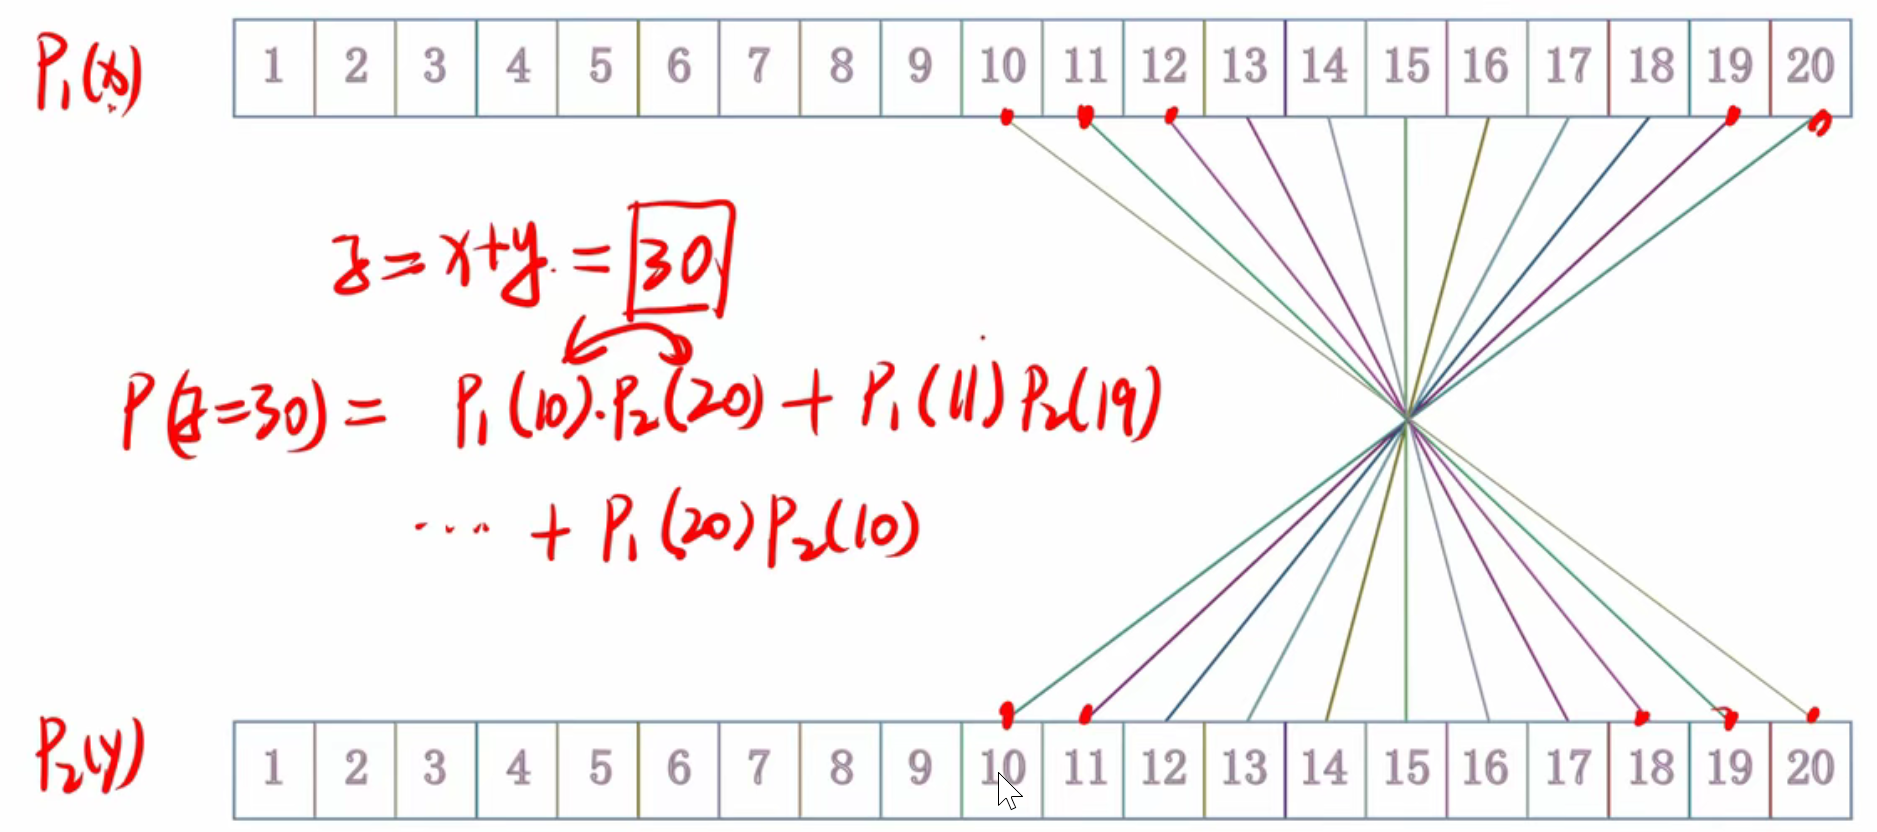 P₁(x) 1 2 3 4 5 6 7 8 9 10 11 12 13 14 15 16 17 18 19 20
z = x+y = 30
P(z=30) = P₁(10)·P₂(20) + P₁(11)P₂(19)
... + P₁(20)P₂(10)
P₂(y) 1 2 3 4 5 6 7 8 9 10 11 12 13 14 15 16 17 18 19 20